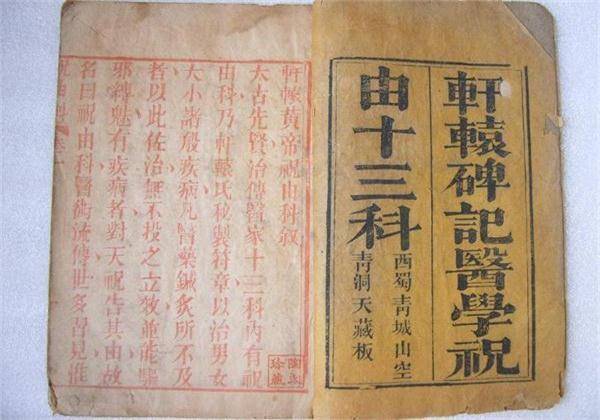 軒轅碑記醫學祝
由十三科
西蜀青城山空
青洞天藏板
軒轅黃帝祝由科叙
太古先賢治傳醫家十三科內有祝
由科乃軒轅氏秘製符章以治男女
大小諸般疾病凡醫藥鍼灸所不及
者以此佐治無不投之立效並能驅
邪縛魅有疾病者對天祝告其由故
名曰祝由科醫術流傳世多習見惟
祝由科 卷一
珍藏